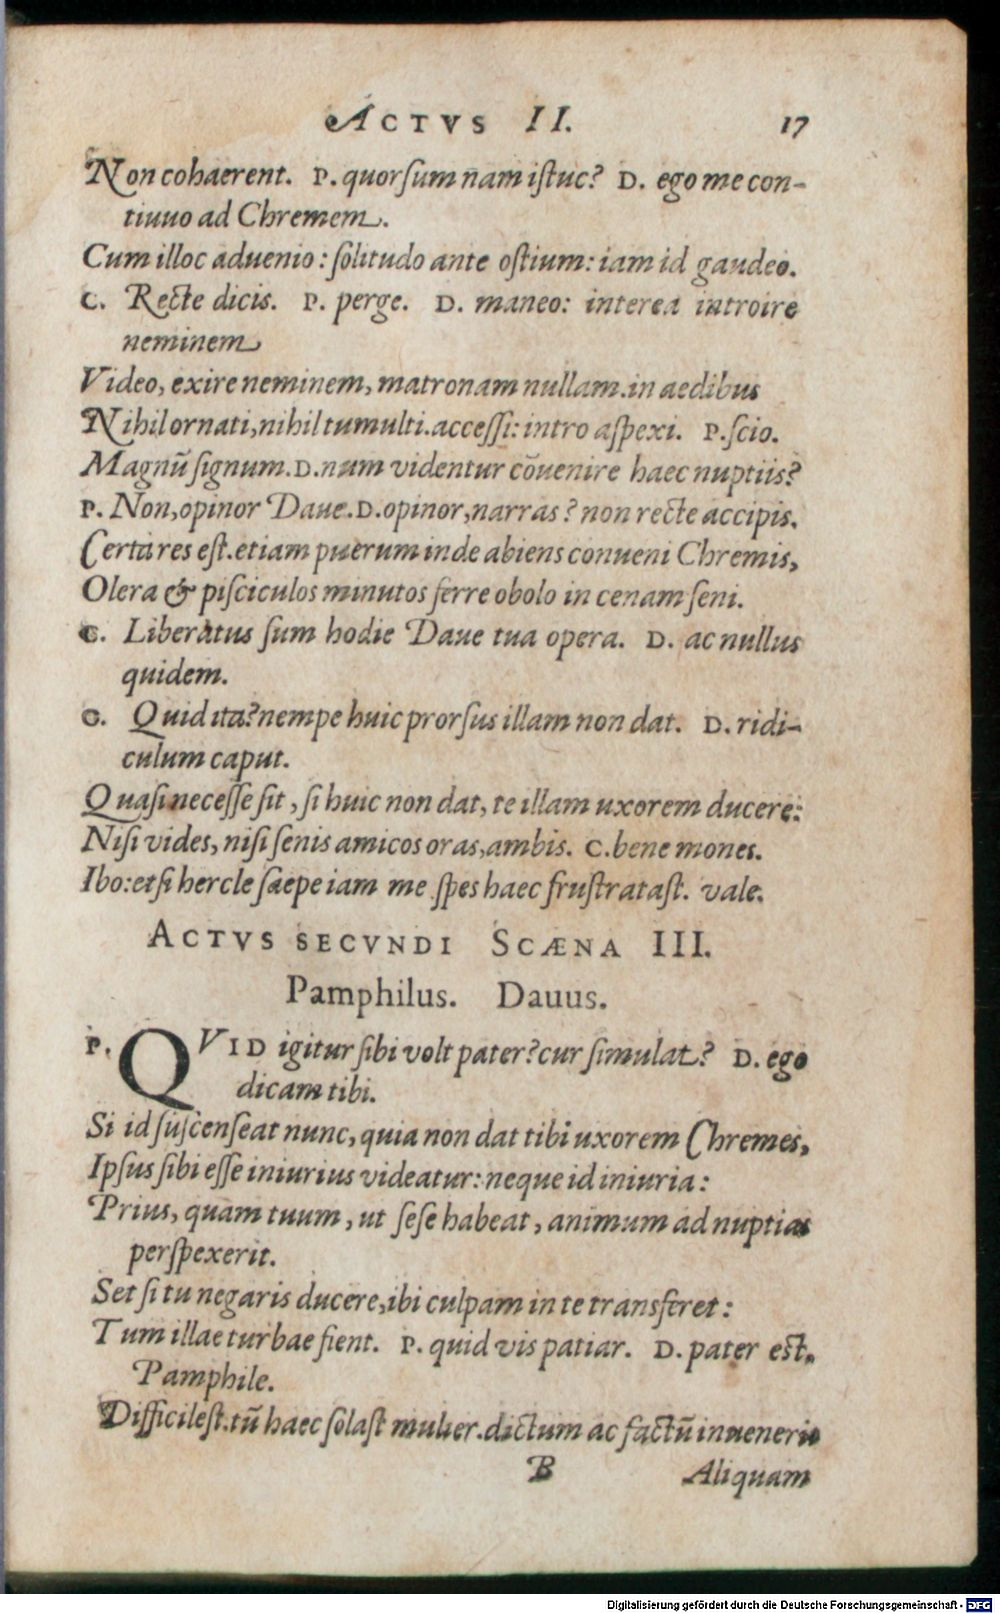 ACTVS II. 17
Non cohaerent. P. quorsum nam istuc? D. ego me con-
tiuuo ad Chremem.
Cum illoc aduenio: solitudo ante ostium: iam id gaudeo.
C. Recte dicis. P. perge. D. maneo: interea introire
neminem
Video, exire neminem, matronam nullam. in aedibus
Nihil ornati, nihil tumulti. accessi: intro aspexi. P. scio.
Magnū signum. D. num videntur cōuenire haec nuptiis?
P. Non, opinor Daue. D. opinor, narras? non recte accipis.
Certa res est. etiam puerum inde abiens conueni Chremis,
Olera & pisciculos minutos ferre obolo in cenam seni.
C. Liberatus sum hodie Daue tua opera. D. ac nullus
quidem.
C. Quid ita? nempe huic prorsus illam non dat. D. ridi-
culum caput.
Quasi necesse sit, si huic non dat, te illam uxorem ducere:
Nisi vides, nisi senis amicos oras, ambis. C. bene mones.
Ibo: etsi hercle saepe iam me spes haec frustratast. vale.
ACTVS SECVNDI SCÆNA III.
Pamphilus. Dauus.
P. QVID igitur sibi volt pater? cur simulat? D. ego
dicam tibi.
Si id suscenseat nunc, quia non dat tibi uxorem Chremes,
Ipsus sibi esse iniurius videatur: neque id iniuria:
Prius, quam tuum, ut sese habeat, animum ad nuptias
perspexerit.
Set si tu negaris ducere, ibi culpam in te transferet:
Tum illae turbae fient. P. quid vis patiar. D. pater est,
Pamphile.
Difficilest. tū haec solast mulier. dictum ac factū inuenerit
B Aliquam
Digitalisierung gefördert durch die Deutsche Forschungsgemeinschaft - DFG